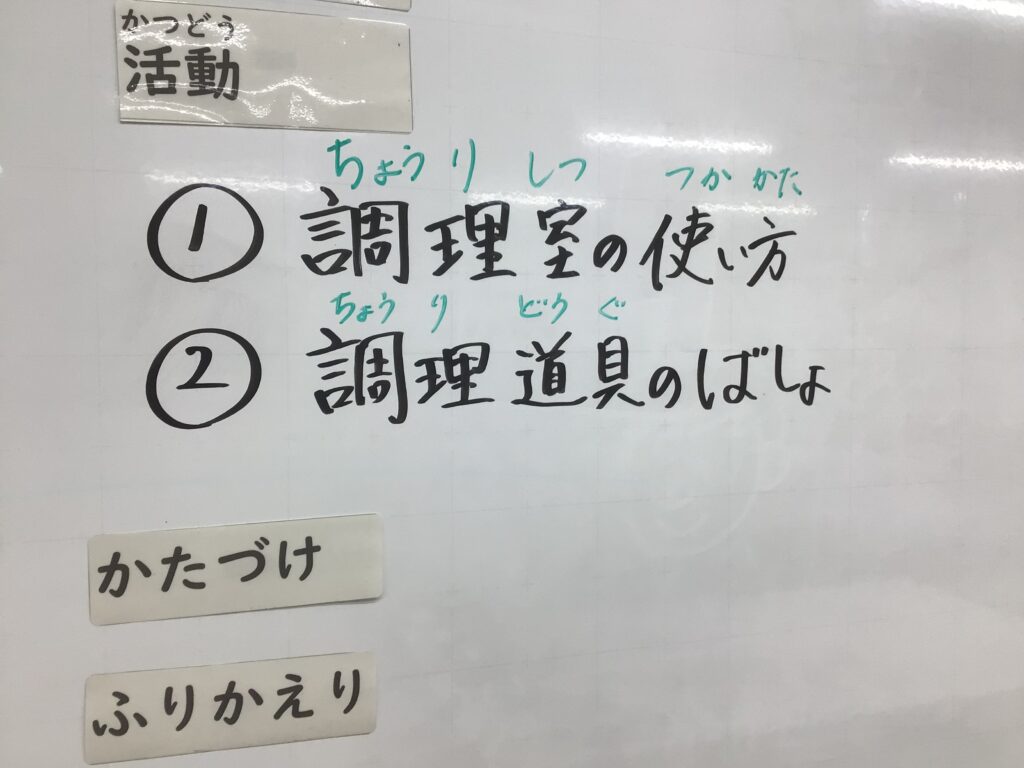 かつどう
活動
ちょうりしつ つかかた
① 調理室の使い方
ちょうりどうぐ
② 調理道具のばしょ
かたづけ
ふりかえり